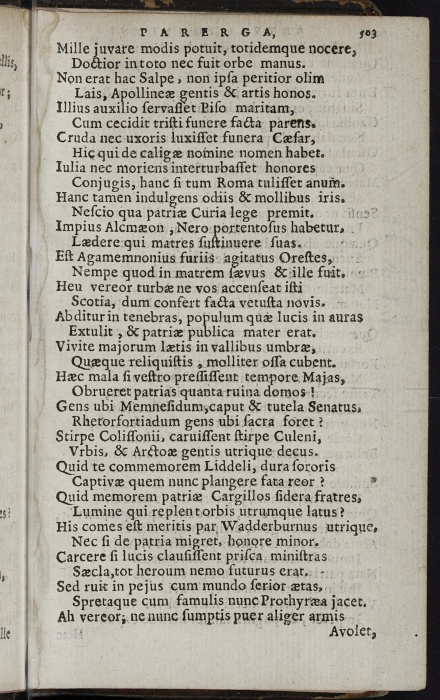 PARERGA, 503
Mille juvare modis potuit, totidemque nocere,
Doctior in toto nec fuit orbe manus.
Non erat hac Salpe, non ipsa peritior olim
Lais, Apollineæ gentis & artis honos.
Illius auxilio servasset Piso maritam,
Cum cecidit tristi funere facta parens.
Cruda nec uxoris luxisset funera Cæsar,
Hic qui de caligæ nomine nomen habet.
Iulia nec moriens interturbasset honores
Conjugis, hanc si tum Roma tulisset anum.
Hanc tamen indulgens odiis & mollibus iris.
Nescio qua patriæ Curia lege premit.
Impius Alcmæon, Nero portentosus habetur,
Lædere qui matres sustinuere suas.
Est Agamemnonius furiis agitatus Orestes,
Nempe quod in matrem sævus & ille fuit.
Heu vereor turbæ ne vos accenseat isti
Scotia, dum confert facta vetusta novis.
Abditur in tenebras, populum quæ lucis in auras
Extulit, & patriæ publica mater erat.
Vivite majorum lætis in vallibus umbræ,
Quæque reliquistis, molliter ossa cubent.
Hæc mala si vestro pressissent tempore Majas,
Obrueret patrias quanta ruina domos!
Gens ubi Memnesidum, caput & tutela Senatus,
Rhetorfortiadum gens ubi sacra foret?
Stirpe Colissonii, caruissent stirpe Culeni,
Vrbis, & Arctoæ gentis utrique decus.
Quid te commemorem Liddeli, dura sororis
Captivæ quem nunc plangere fata reor?
Quid memorem patriæ Cargillos sidera fratres,
Lumine qui replent orbis utrumque latus?
His comes est meritis par Wadderburnus utrique,
Nec si de patria migret, honore minor.
Carcere si lucis clausissent prisca ministras
Sæcla, tot heroum nemo futurus erat.
Sed ruit in pejus cum mundo serior ætas,
Spretaque cum famulis nunc Prothyræa jacet.
Ah vereor, ne nunc sumptis puer aliger armis
Avolet,